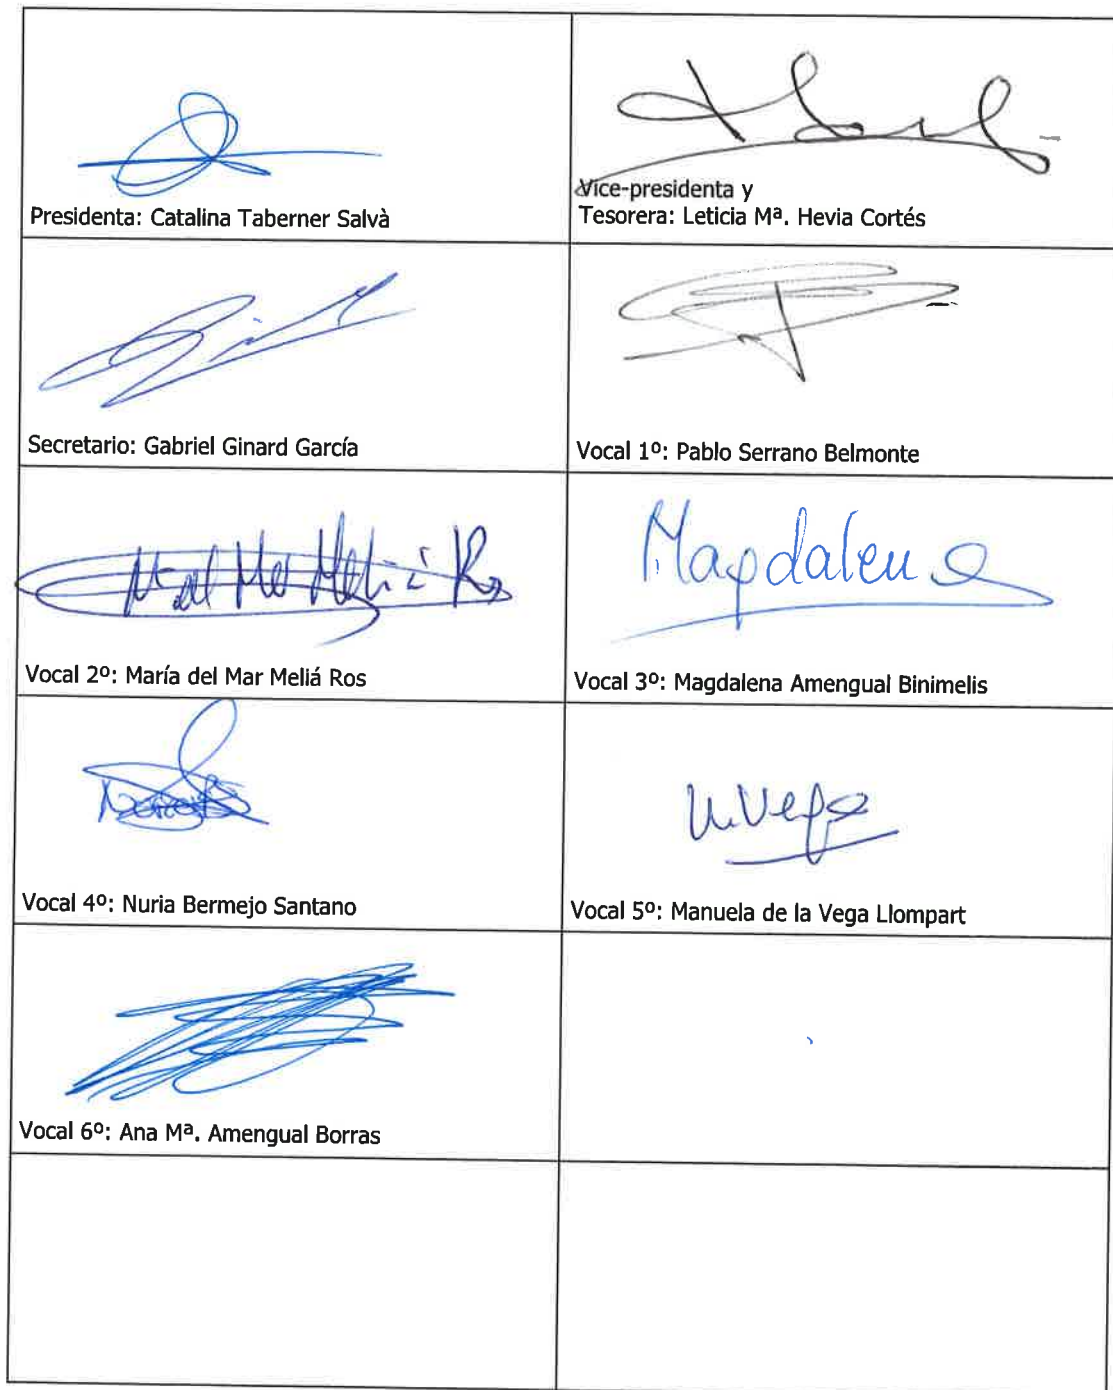 Presidenta: Catalina Taberner Salvà
Vice-presidenta y
Tesorera: Leticia Mª. Hevia Cortés
Secretario: Gabriel Ginard García
Vocal 1º: Pablo Serrano Belmonte
Vocal 2º: María del Mar Meliá Ros
Magdalena
Vocal 3º: Magdalena Amengual Binimelis
Vocal 4º: Nuria Bermejo Santano
Vocal 5º: Manuela de la Vega Llompart
Vocal 6º: Ana Mª. Amengual Borras